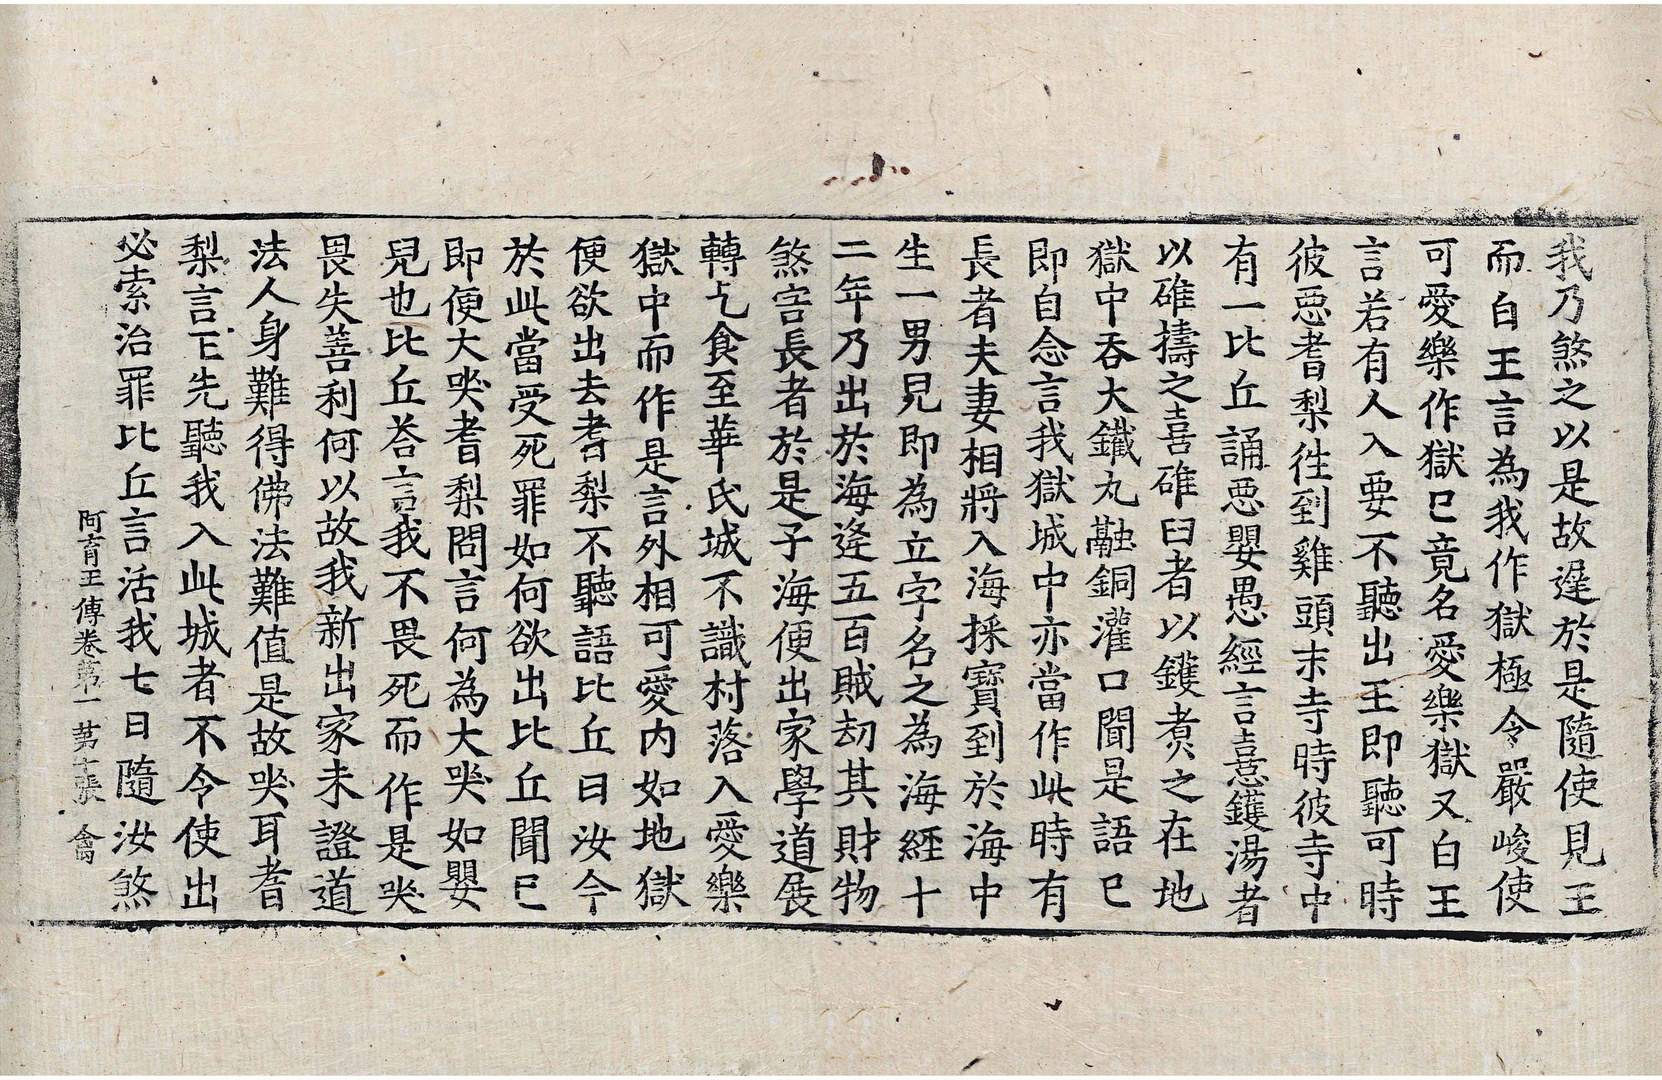 我乃煞之以是故遲於是隨使見王
而白王言為我作獄極令嚴峻使
可愛樂作獄已竟名愛樂獄又白王
言若有人入要不聽出王即聽可時
彼惡耆梨徃到雞頭末寺時彼寺中
有一比丘誦惡嬰愚經言憙鑊湯者
以碓擣之喜碓臼者以鑊煑之在地
獄中吞大鐵丸融銅灌口聞是語已
即自念言我獄城中亦當作此時有
長者夫妻相將入海採寶到於海中
生一男兒即為立字名之為海經十
二年乃出於海逢五百賊劫其財物
煞害長者於是子海便出家學道展
轉乞食至華氏城不識村落入愛樂
獄中而作是言外相可愛內如地獄
便欲出去耆梨不聽語比丘曰汝今
於此當受死罪如何欲出比丘聞已
即便大哭耆梨問言何為大哭如嬰
兒也比丘荅言我不畏死而作是哭
畏失善利何以故我新出家未證道
法人身難得佛法難值是故哭耳耆
梨言王先聽我入此城者不令使出
必索治罪比丘言活我七日隨汝煞
阿育王傳卷第一 第十張 禽